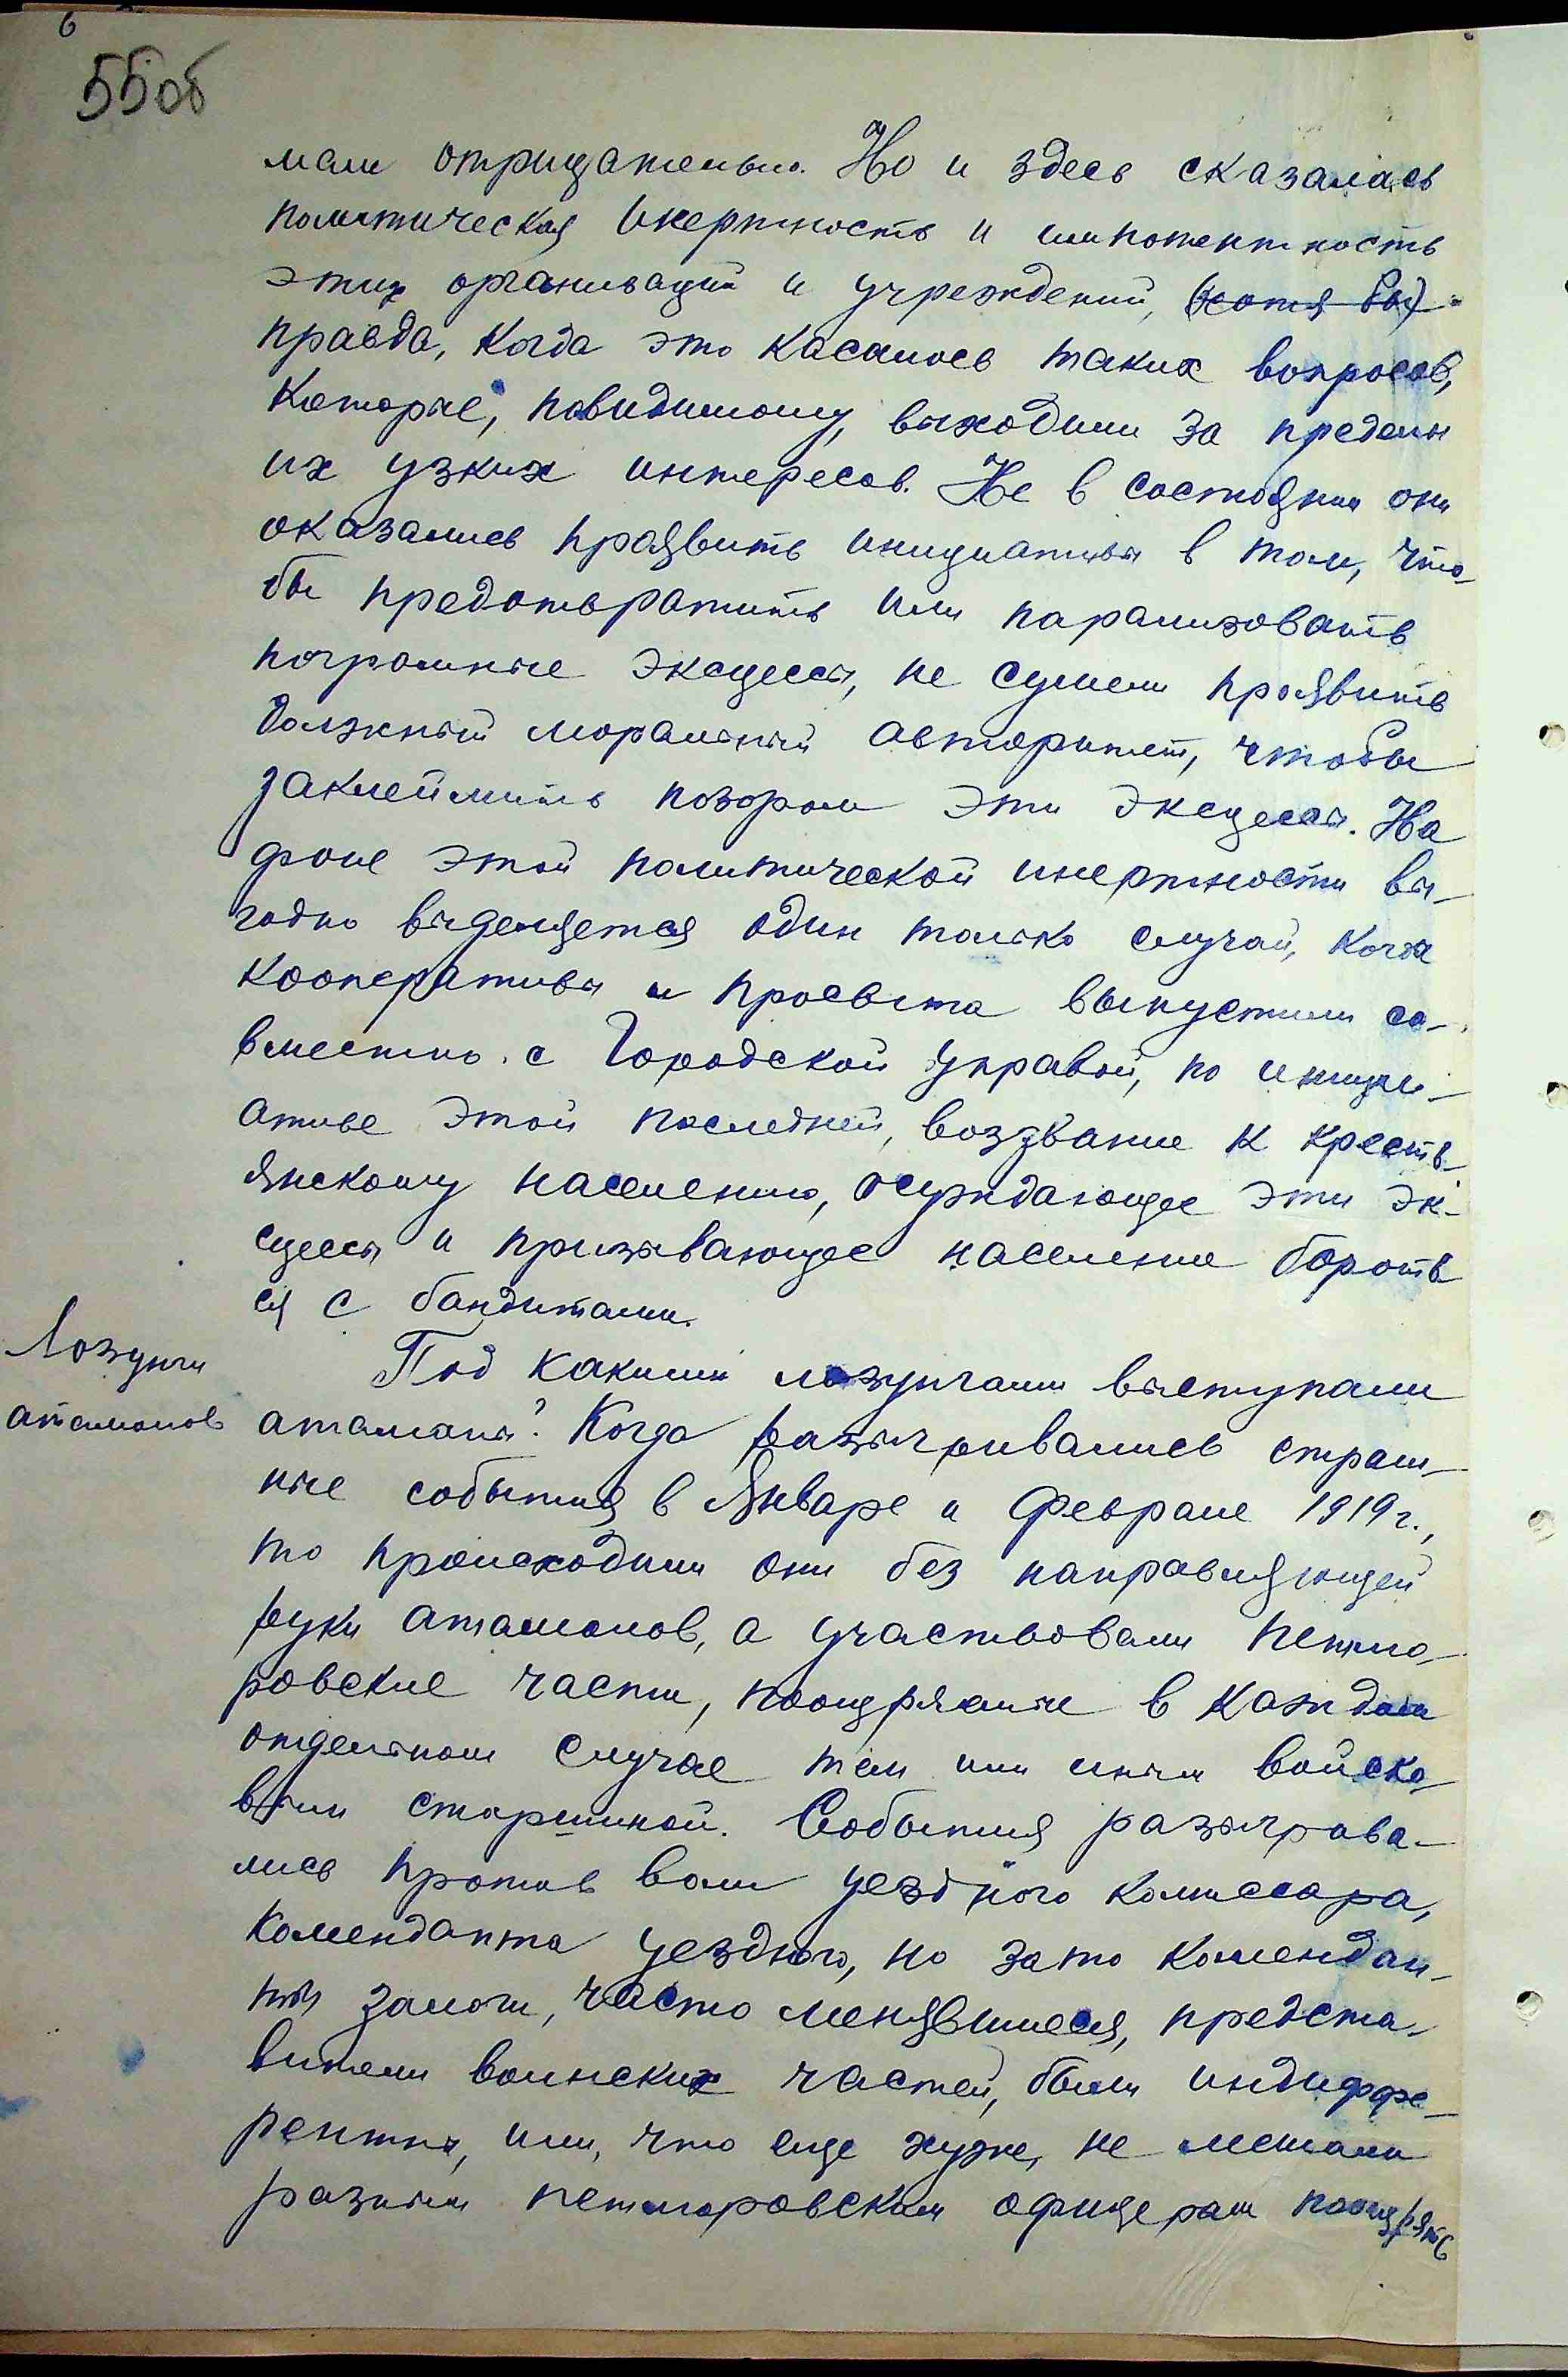 6
55об
мали отрицательно. Но и здесь сказалась
политическая инертность и импотентность
этих организаций и учреждений, (хотя бы)
правда, когда это касалось таких вопросов,
которые, повидимому, выходили за пределы
их узких интересов. Не в состоянии они
оказались проявить инициативы в том, что-
бы предотвратить или парализовать
погромные эксцессы, не сумели проявить
должный моральный авторитет, чтобы
заклеймить позором эти эксцессы. На
фоне этой политической инертности вы-
годно выделяется один только случай, когда
кооперативы и просвита выпустили со-
вместно с Городской Управой, по иници-
ативе этой последней, воззвание к кресть-
янскому населению, осуждающее эти эк-
сцессы и призывающее население бороть
ся с бандитами.
Лозунги
атаманов
Под какими лозунгами выступали
атаманы? Когда разыгрывались страш-
ные события в Январе и Феврале 1919 г.,
то происходили они без направляющей
руки атаманов, а участвовали петлю-
ровские части, поощряемые в каждом
отдельном случае тем или иным войско-
вым старшиной. События разыгрова-
лись против воли уездного комиссара,
коменданта уездного, но зато комендан-
ты залоги, часто менявшиеся, предста-
вители воинских частей, были индиффе-
рентны, или, что еще хуже, не мешали
разным петлюровским офицерам поощрять